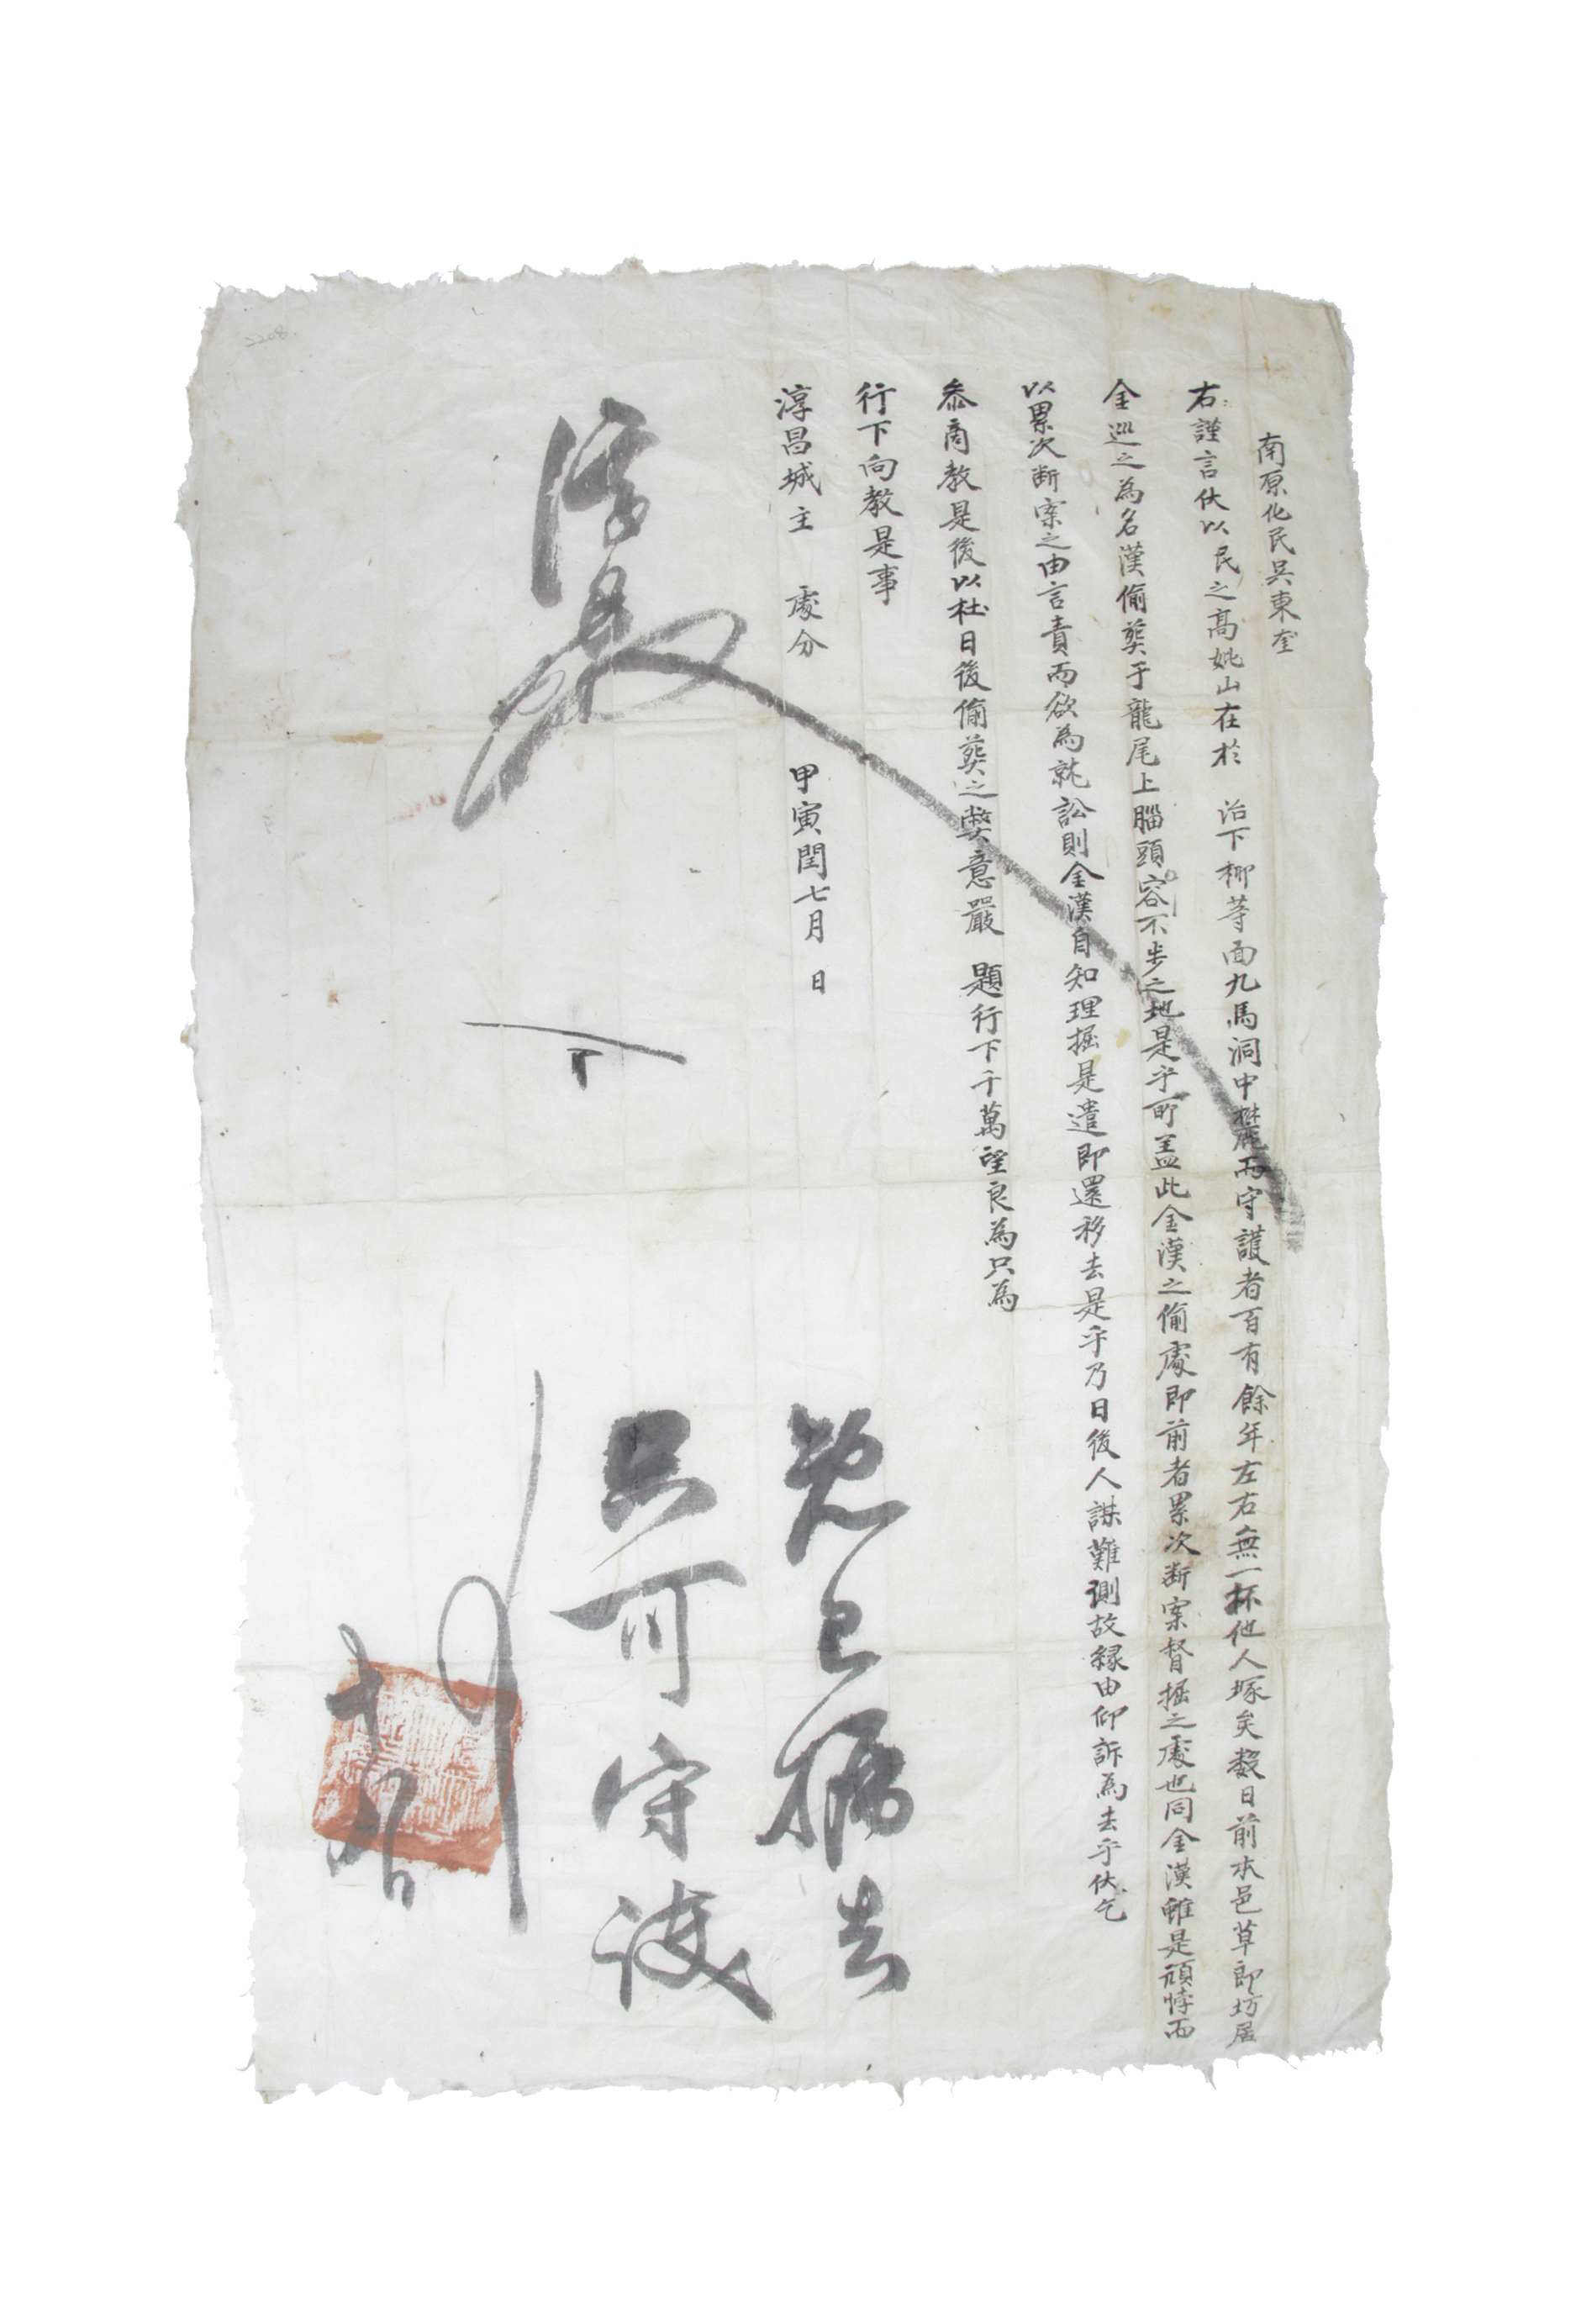 南原化民吳東奎
右謹言伏以民之高妣山在於 治下柳等面九馬洞中麓而守護者百有餘年左右無一抔他人塚矣數日前本邑草郎坊居
金巡之為名漢偷葬于龍尾上腦頭容不步之地是乎所盖此金漢之偷處即前者累次断案督掘之處也同金漢雖是頑悖而
以累次断案之由言責而欲為就訟則金漢自知理掘是遣即還移去是乎乃日後人謀難測故緣由仰訴為去乎伏乞
叅商敎是後以杜日後偷葬之弊意嚴 題行下千萬望良為只為
行下向敎是事
淳昌城主 處分 甲寅閏七月 日
旣已掘去
只可守護
十九日
2208